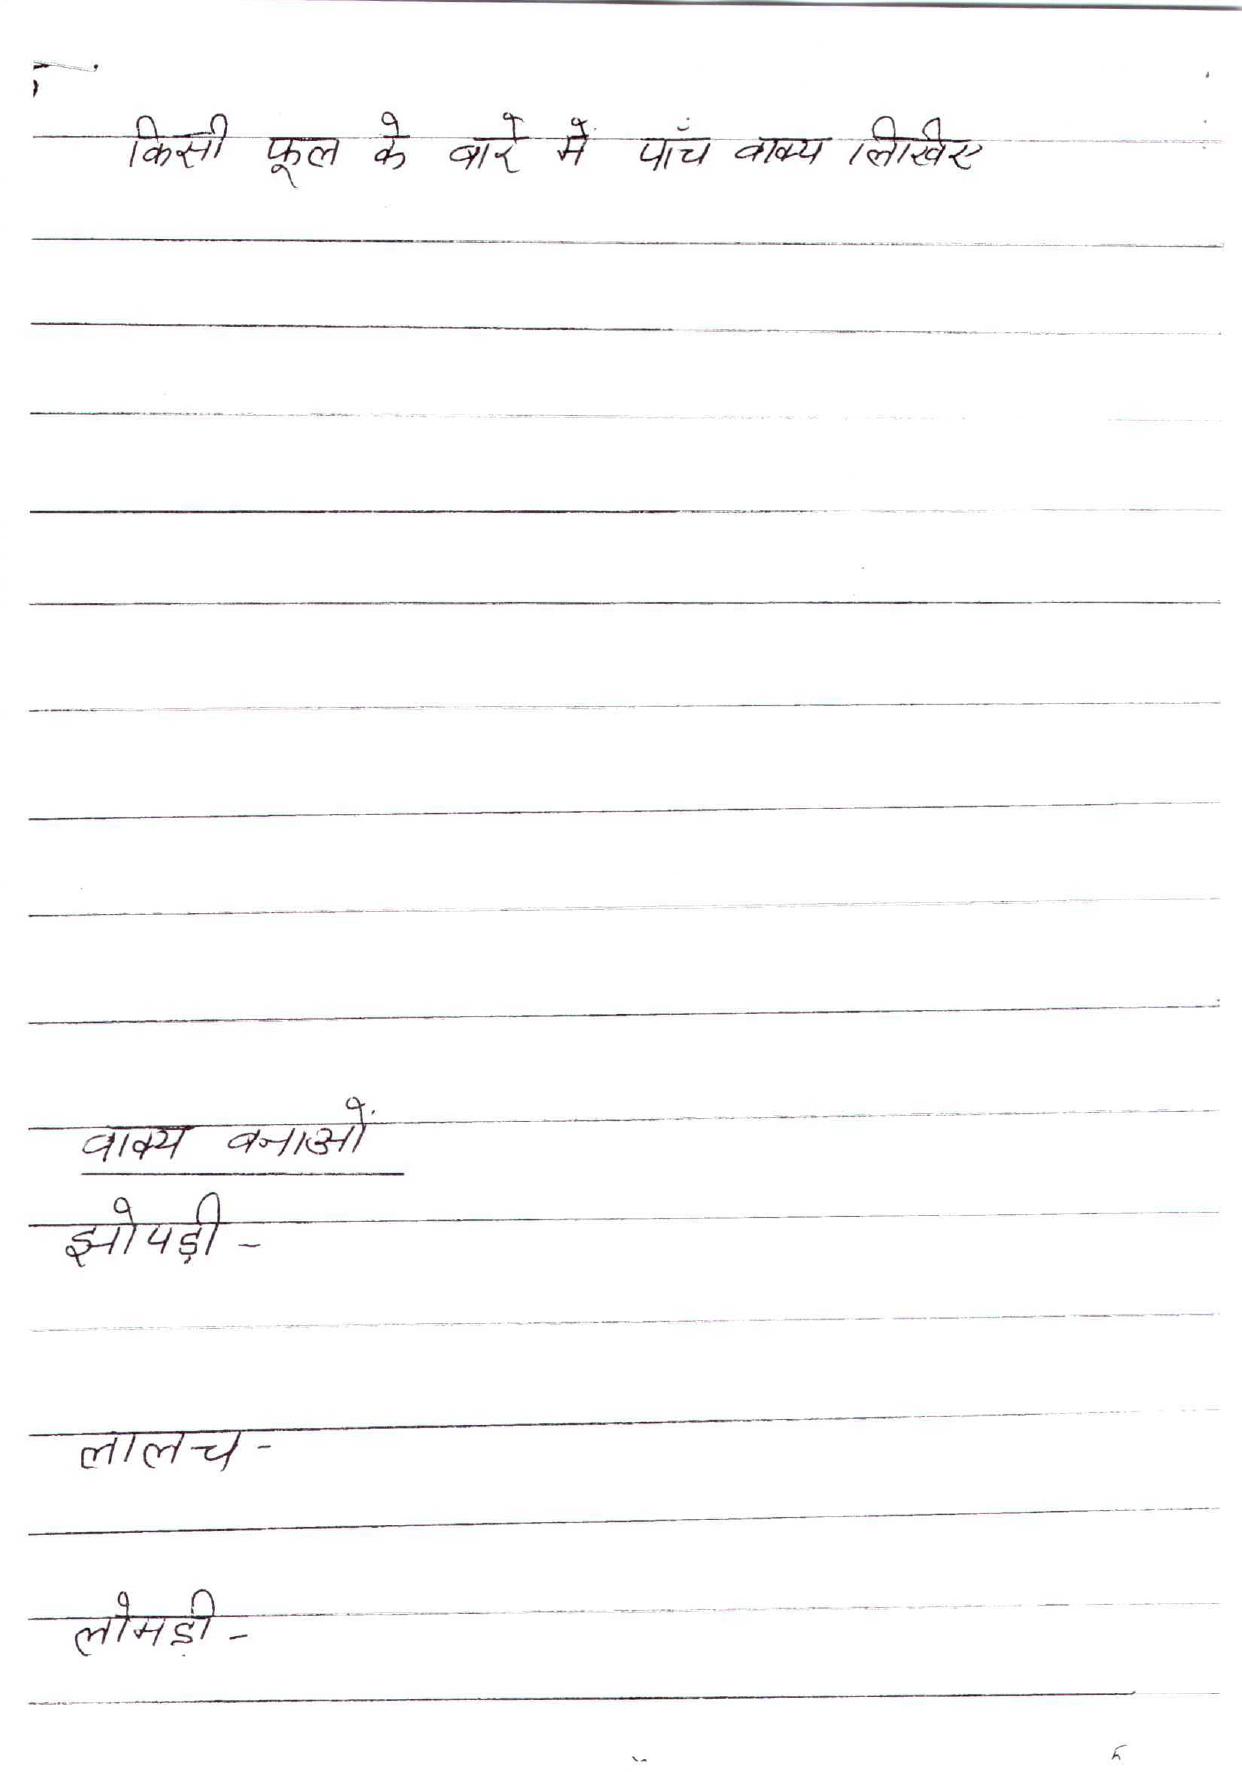 किसी फूल के बारे में पाँच वाक्य लिखिए
वाक्य बनाओं
झोपड़ी -
लालच -
लोमड़ी -